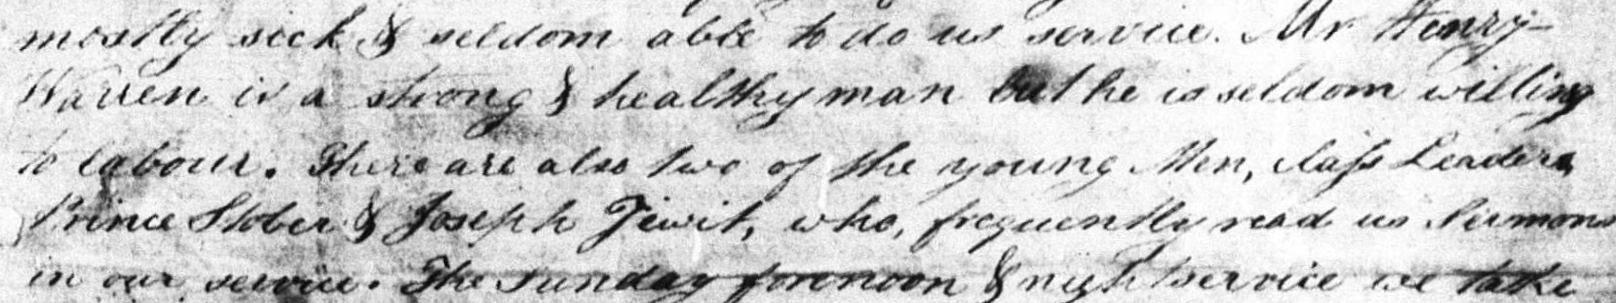 mostly sick & seldom able to do us service. Mr Henry
Warren is a strong & healthy man but he is seldom willing
to labour. There are also two of the young Men, Class Leaders
Prince Stober & Joseph Jewit, who, frequently read us Sermons
in our service. The sunday forenoon & night service we take